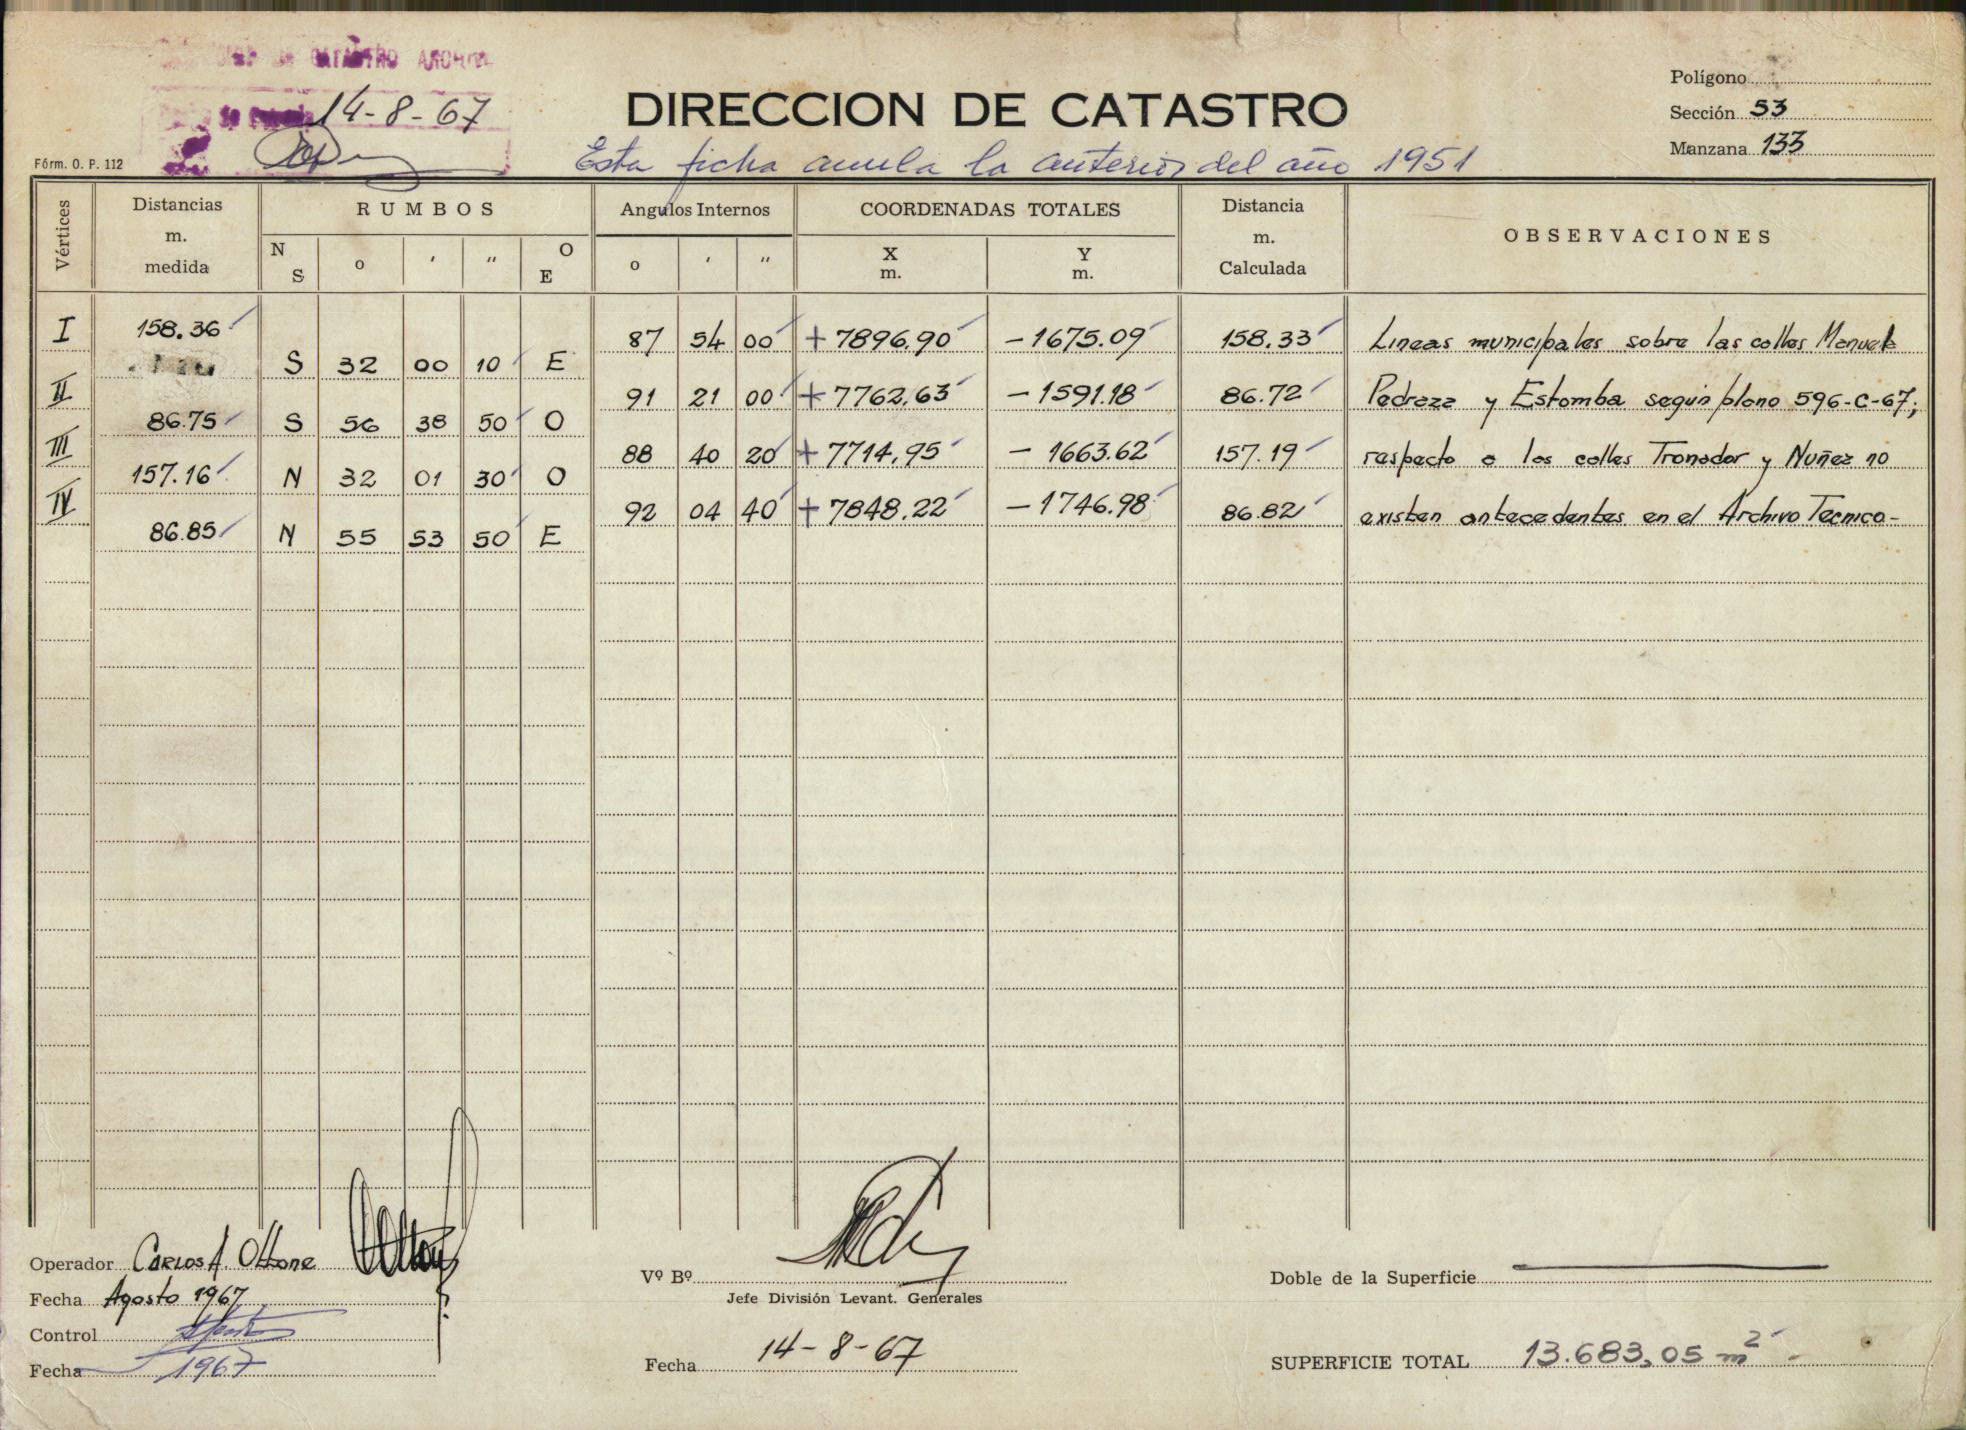 DE CATASTRO
14-8-67
DIRECCION DE CATASTRO
Polígono
Sección 53
Manzana 133
Fórm. O. P. 112
Esta ficha anula la anterior del año 1951
Vértices
Distancias m. medida
RUMBOS
N S o ' " O E
Angulos Internos
o ' "
COORDENADAS TOTALES
X m. Y m.
Distancia m. Calculada
OBSERVACIONES
I 158.36 87 54 00 +7896.90 -1675.09 158.33 Lineas municipales sobre las calles Manuela
S 32 00 10 E
II 91 21 00 +7762,63 -1591.18 86.72 Pedraza y Estomba según plano 596-C-67;
86.75 S 56 38 50 O
III 88 40 20 +7714,95 -1663.62 157.19 respecto a las calles Tronador y Nuñez no
157.16 N 32 01 30 O
IV 92 04 40 +7848.22 -1746.98 86.82 existen antecedentes en el Archivo Tecnico-
86.85 N 55 53 50 E
Operador CARLOS A. Ottone
Fecha Agosto 1967
Control
Fecha 1967
Vº Bº
Jefe División Levant. Generales
Fecha 14-8-67
Doble de la Superficie
SUPERFICIE TOTAL 13.683,05 m²